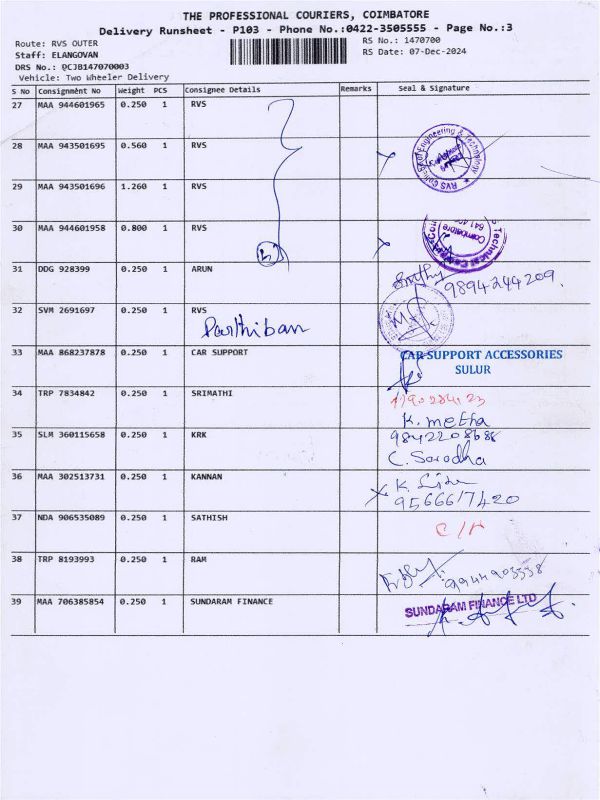 THE PROFESSIONAL COURIERS, COIMBATORE
Delivery Runsheet - P103 - Phone No.:0422-3505555 - Page No.:3
Route: RVS OUTER
RS No.: 1470700
Staff: ELANGOVAN
RS Date: 07-Dec-2024
DRS No.: QCJB147070003
Vehicle: Two Wheeler Delivery
S No Consignment No Weight PCS Consignee Details Remarks Seal & Signature
27 MAA 944601965 0.250 1 RVS
28 MAA 943501695 0.560 1 RVS
RVS College of Engineering & Technology
29 MAA 943501696 1.260 1 RVS
30 MAA 944601958 0.800 1 RVS
Coimbatore
31 DDG 928399 0.250 1 ARUN
9894244209.
32 SVM 2691697 0.250 1 RVS
Parthiban
33 MAA 868237878 0.250 1 CAR SUPPORT
CAR SUPPORT ACCESSORIES
SULUR
34 TRP 7834842 0.250 1 SRIMATHI
K. metha
35 SLM 360115658 0.250 1 KRK
C. Sarodha
36 MAA 302513731 0.250 1 KANNAN
9566617420
37 NDA 906535089 0.250 1 SATHISH
38 TRP 8193993 0.250 1 RAM
39 MAA 706385854 0.250 1 SUNDARAM FINANCE
SUNDARAM FINANCE LTD